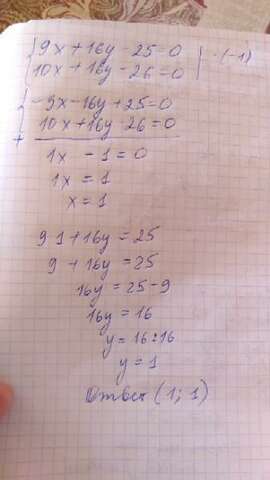 9x+16y-25=0 | ·(-1)
10x+16y-26=0
-9x-16y+25=0
10x+16y-26=0
+
1x -1=0
1x=1
x=1
9·1+16y=25
9+16y=25
16y=25-9
16y=16
y=16:16
y=1
Ответ (1; 1)